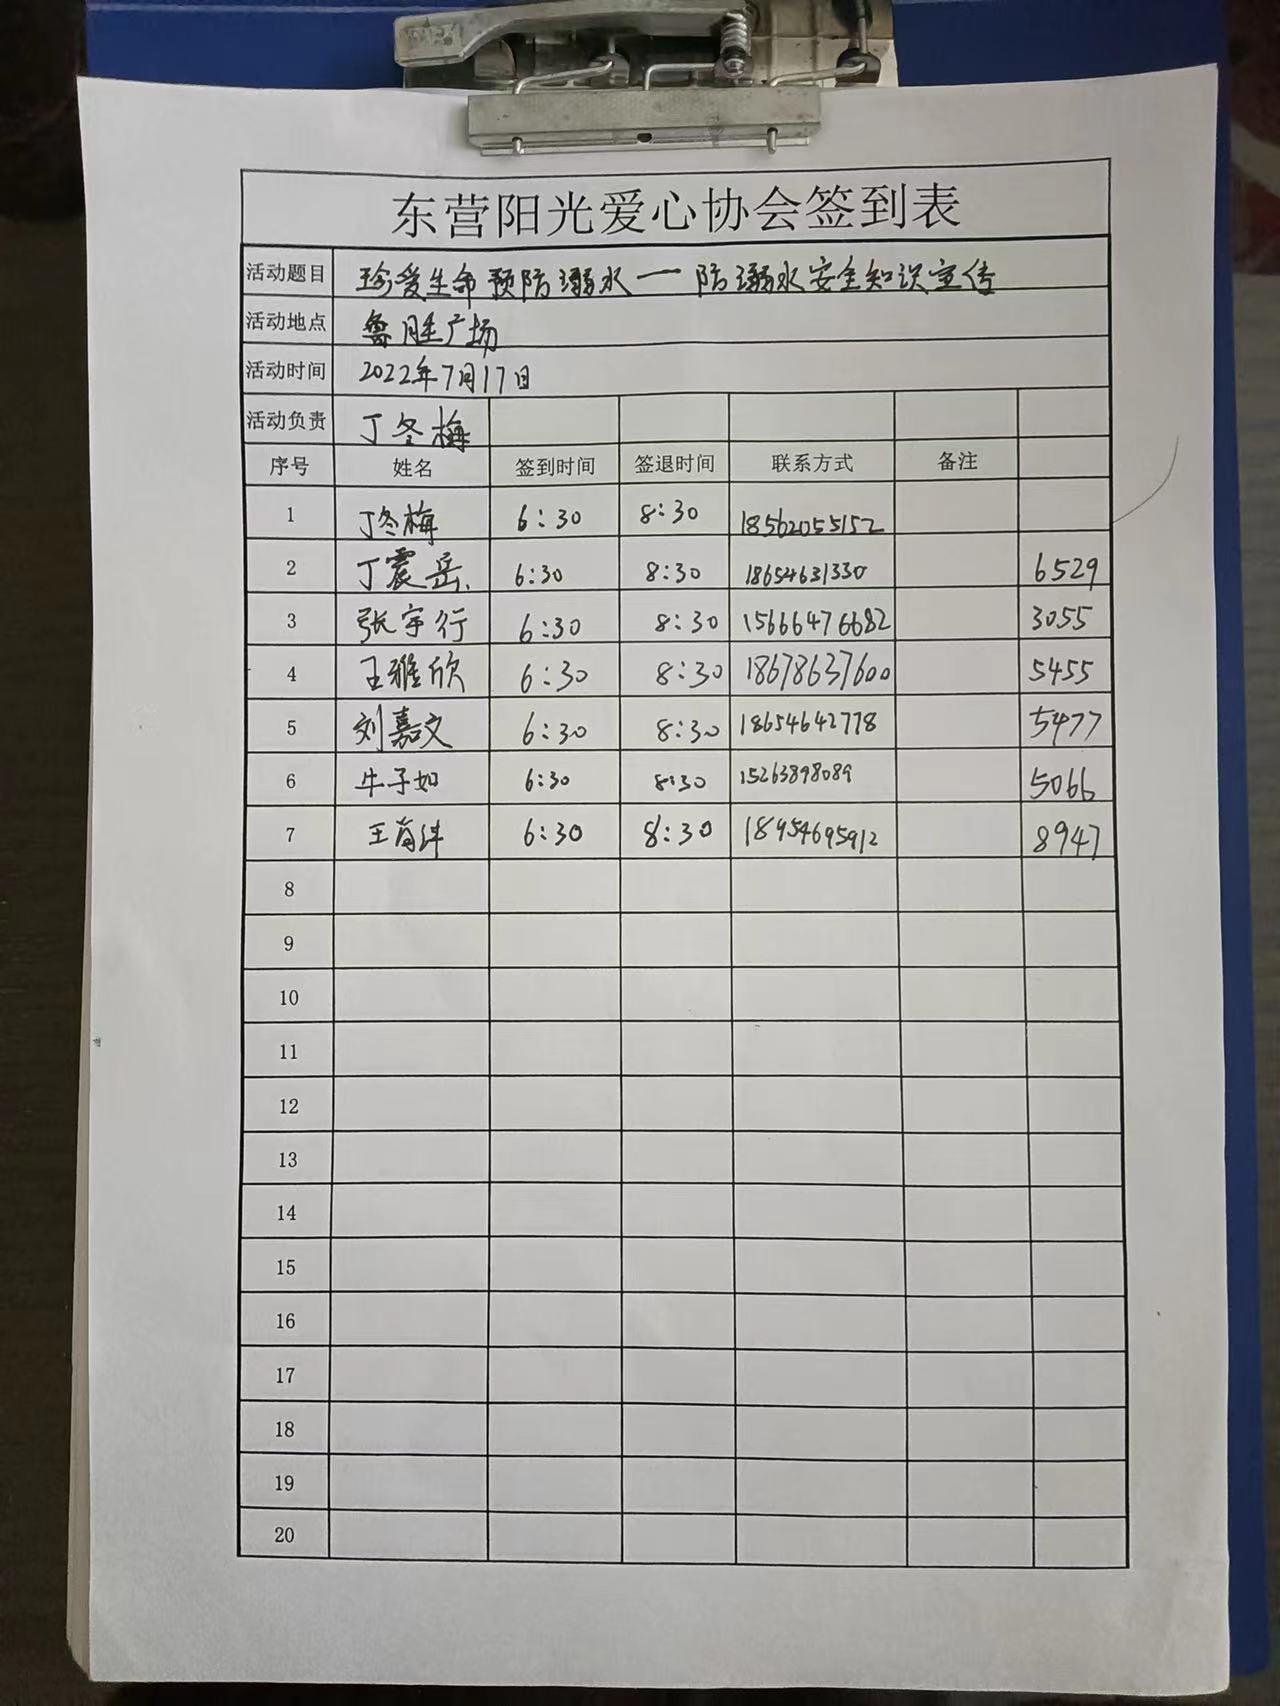 东营阳光爱心协会签到表
活动题目 珍爱生命 预防溺水一防溺水安全知识宣传
活动地点 鲁胜广场
活动时间 2022年7月17日
活动负责 丁冬梅
序号 姓名 签到时间 签退时间 联系方式 备注
1 丁冬梅 6:30 8:30 18562055152
2 丁震岳 6:30 8:30 18654631330 6529
3 张宇行 6:30 8:30 15666476682 3055
4 王雅欣 6:30 8:30 18678637600 5455
5 刘嘉文 6:30 8:30 18654642778 5477
6 牛子如 6:30 8:30 15263898089 5066
7 王 6:30 8:30 18954695912 8947
8
9
10
11
12
13
14
15
16
17
18
19
20